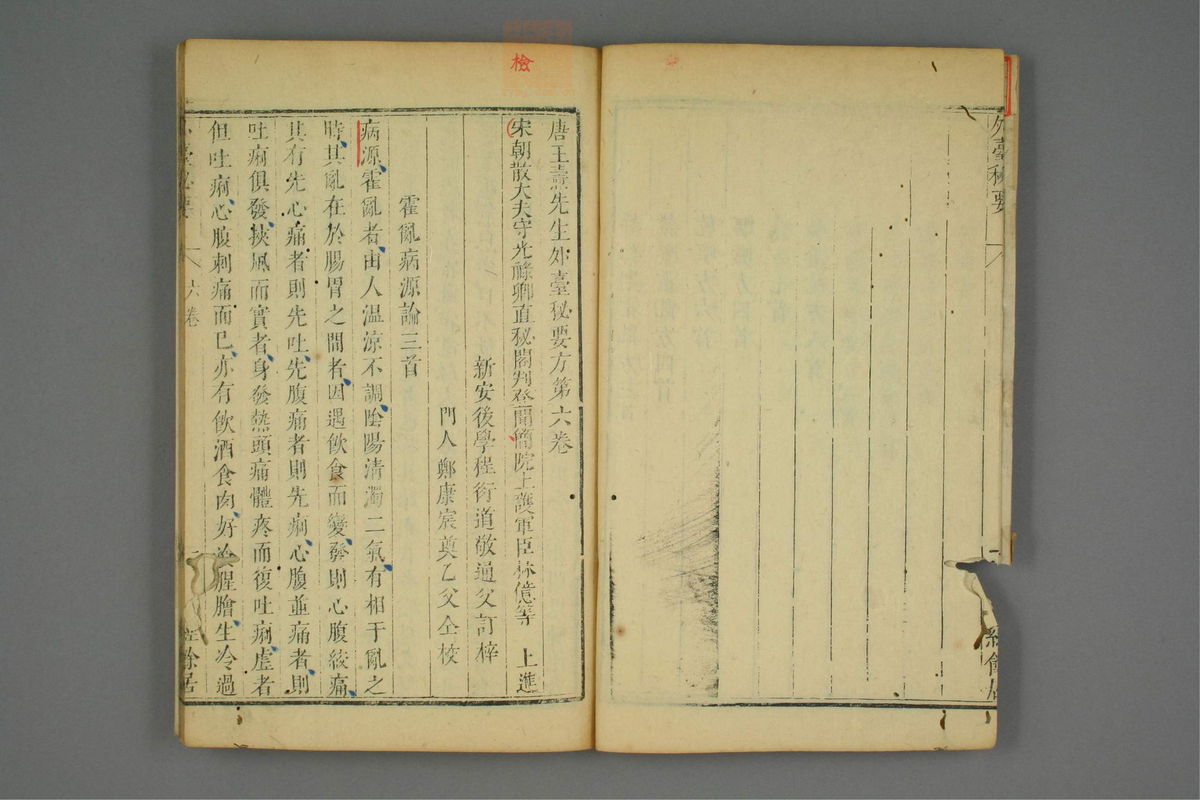 檢
外臺秘要
唐王燾先生外臺秘要方第六卷
宋朝散大夫守光祿卿直秘閣判登聞簡院上護軍臣林億等 上進
新安後學程衍道敬通父訂梓
門人鄭康宸奠乙父仝校
霍亂病源論三首
病源霍亂者由人溫涼不調陰陽清濁二氣有相于亂之
時其亂在於腸胃之間者因遇飲食而變發則心腹絞痛
其有先心痛者則先吐先腹痛者則先痢心腹並痛者則
吐痢俱發挾風而實者身發熱頭痛體疼而復吐痢虛者
但吐痢心腹刺痛而已亦有飲酒食肉好飡腥膾生冷過
六卷